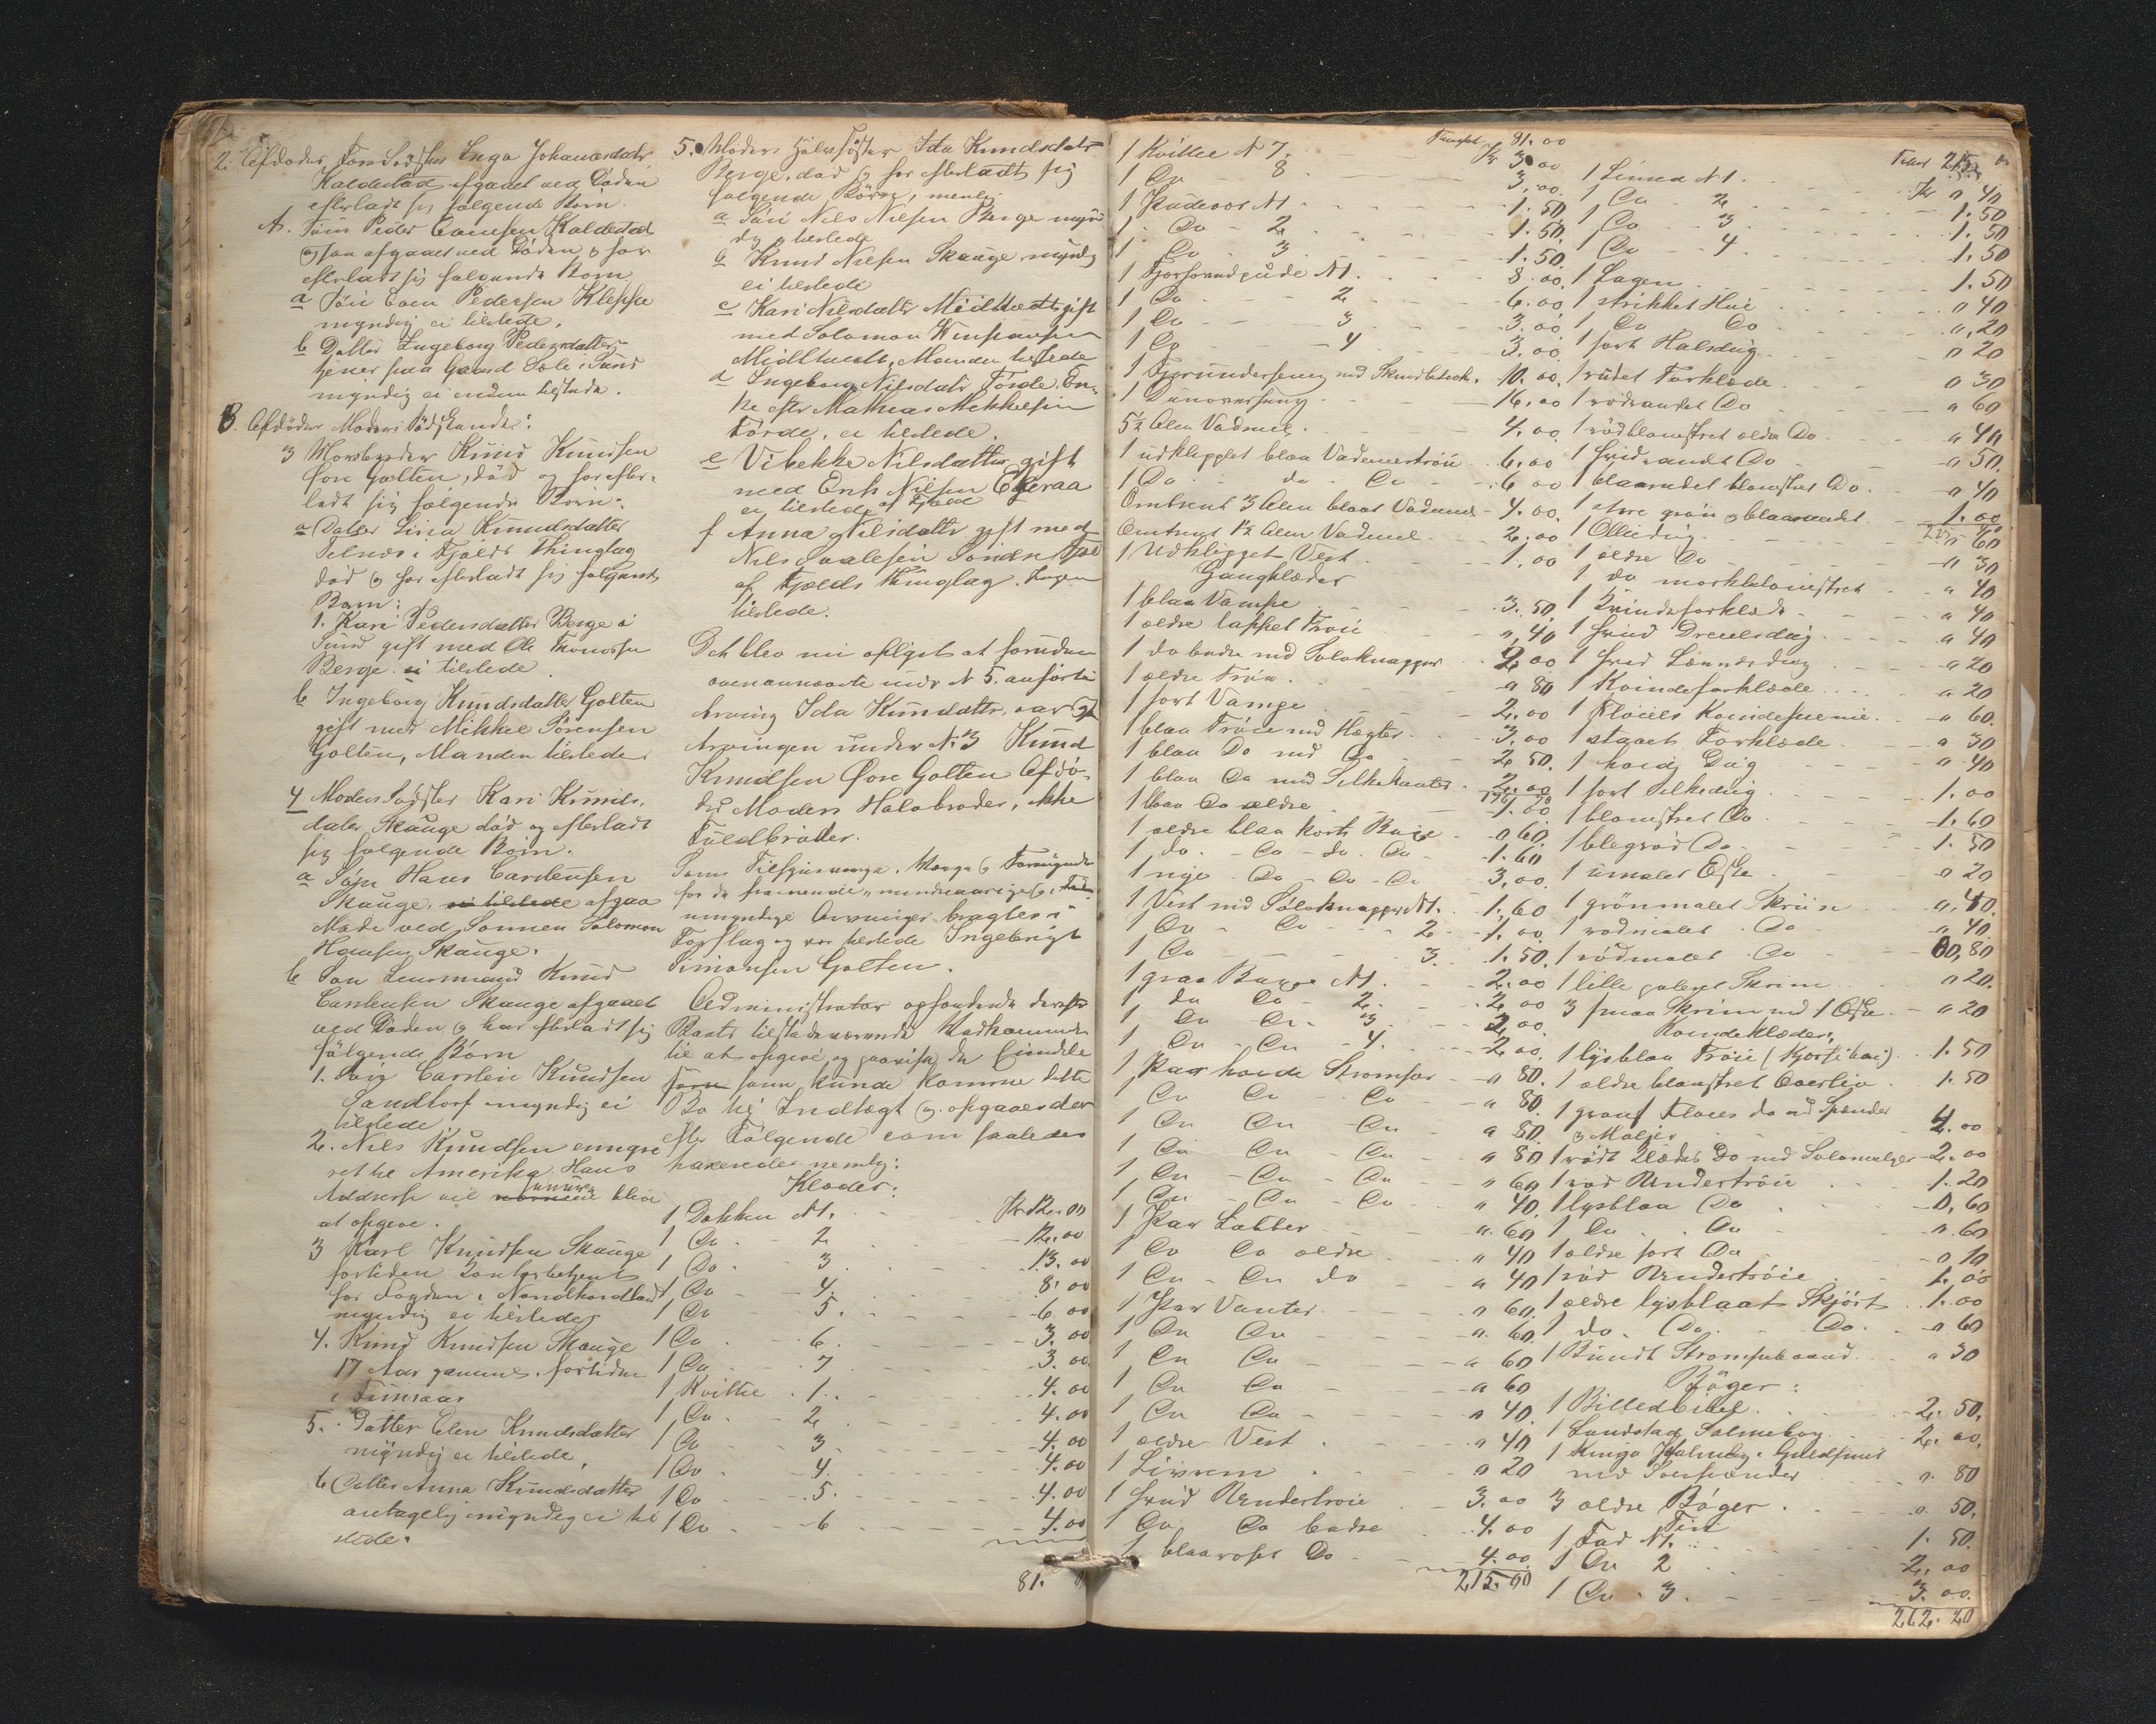 2. Afdødes FaderSødster Inga Johanesdatr
Kaldestad afgaaet ved Døden
efterladt sig følgende Børn.
A. Søn Peder Carelsen Kaldestad
ogsaa afgaaet ved Døden & har
efterladt sig følgende Børn
a Søn Peder Pedersen Kleppe
myndig ei tilstede.
b Datter Ingeborg Pedersdatter
tjener paa Gaard Sæle i Sund
myndig ei enden tilstede.
B. Afdødes Moders Sødskende:
3 Morbroder Knud Knudsen
Øvre Golten, død og har efter-
ladt sig følgende Børn:
a Datter Siria Knudsdatter
Telnæs i Fjelds Thinglag
død & har efterladt sig følgende
Børn:
1. Kari Pedersdatter Berge i
Sund gift med Ole Thomassen
Berge ei tilstede
b Ingeborg Knudsdatter Golten
gift med Mikkel Sørensen
Golten, Manden tilstede
4 Moders Sødster Kari Knuds-
datter Skauge død og efterladt
sig følgende Børn.
a Søn Hans Carstensen
Skauge, ei tilstede afgaa
Møde ved Sønnen Salomon
Hansen Skauge.
b Søn Lensmand Knud
Carstensen Skauge afgaaet
ved Døden & har efterladt sig
følgende Børn
1. Søn Carsten Knudsen
Sandtorf myndig ei
tilstede
2. Nils Knudsen emigre
ret til Amerika. Hans
Addresse vil senere blive
at opgive.
3 Karl Knudsen Skauge
fortiden Contorbetjent
hos Fogden i Nordhordland
myndig ei tilstede
4. Knud Knudsen Skauge
17 Aar gammel. fortiden
i Finnaas
5. Datter Elen Knudsdatter
myndig ei tilstede,
6 Datter Anna Knudsdatter
antagelig myndig ei til
stede.
5. Moders Halvsøster Ida Knudsdatr
Berge, død & har efterladt sig
følgende Børn, nemlig
a Søn Nils Nilsen Berge myn
dig & tilstede
b Knud Nilsen Skauge, myndig
ei tilstede
c Kari Nilsdatter Midttvedt gift
med Salomon
Midttvedt, Manden tilstede
d Ingeborg Nilsdatr Førde, En-
ke efter Mathias Mikkelsen
Førde, ei tilstede.
e Vibekke Nilsdatter gift
med Erik Nilsen Ekeraa
ei tilstede af Fjeld
f Anna Nilsdatter gift med
Nils
af Fjelds Thinglag. Ingen
tilstede.
Det blev nu oplyst at foruden
ovennævnte under N 5. anførte
Arving Ida Knudsdatter, var og
Arvingen under N. 3 Knud
Knudsen Øvre Golten Afdø-
des Moders Halvbroder, ikke
Fuldbroder.
Som Tilsynsværge, Værge & Formynder
for de fraværende, mindreaarige &
umyndige Arvinger bragtes i
Forslag og var tilstede Ingebrigt
Simonsen Golten.
Administrator opfordrede derefter
Boets tilstedeværende Vedkommende
til at opgive og paavise de Eiendele
som kunde komme dette
Bo til Indtægt & opgaves der
efter Følgende som saaledes
nemlig:
Klæder:
1 Dækken N 1. Kr 12.00
1 Do - 2 12.00
1 Do - 3 13.00
1 Do - 4. 8.00
1 Do 5. 6 00
1 Do 6. 3.00
1 Do 7 3.00
1 Kvittel 1. 4.00
1 Do - 2 4.00
1 Do 3 4.00
1 Do 4. 4.00
1 Do 5. 4.00
1 Do 6 4.00
81.
Transport 81.00
1 Kvittel N 7. Kr 3.00
1 Do 8 3.00
1 Pudevor N 1. 1.50
1 Do - 2 1.50
1 Do 3 1.50
1 Fjørhovedpude N 1. 8.00
1 Do 2 6.00
1 Do 3 3.00
1 Do 4 3.00
1 Fjærunderseng med Skindbetræk. 10.00
1 Dunoverseng 16.00
5½ Alen Vadmel. 4.00
1 udklippet blaa Vadmelstrøie 6.00
1 Do do Do 6 00
Omtrent 3 Alen blaat Vadmel 4.00
Omtrent 1½ Alen Vadmel 2.00
1 Udklippet Vest 1.00
Gangklæder
1 blaa Vampe 3.50
1 ældre lappet Trøie " 40
1 do bedre med Sølvknapper 2.00
1 ældre Trøie " 80
1 sort Vampe 2.00
1 blaa Trøie med Hægter 3.00
1 blaa Do med Do 2.50
1 blaa Do med Silkekanter 2.00
1 blaa Do ældre 1.00
1 ældre blaa korte Buxe " 60
1 do - Do - do. Do 1.60
1 nye Do - Do - Do 3,00
1 Vest med Sølvknapper N 1. 1.60
1 Do - Do 2 1.00
1 Do 3. 1.50
1 graa Buxe N 1. 2.00
1 do Do 2 2 00
1 Do Do 3 2 00
1 Do - Do - 4. 2.00
1 Par hvide Strømper " 80.
1 Do Do Do " 80
1 Do Do Do " 80
1 Do Do Do " 80
1 Do Do Do " 60
1 Do Do Do " 40
1 Par Labber ". 60
1 Do Do ældre " 40
1 Do - Do do " 40
1 Par Vanter " 60
1 Do Do " 60
1 Do Do " 60
1 Do Do " 60
1 Do Do " 40
1 ældre Vest " 40
1 Livrem " 20
1 hvid Undertrøie 3.00
1 Do Do bedre 4.00
1 blaaroset Do 4.00
215.00
Transport 215.00
1 Linned N 1. Kr " 40
1 Do - 2 1.50
1 Do 3 1.50
1 Do - 4 1.50
1 Lagen 1.50
1 strikket Hue " 40
1 Do Do ",20
1 sort Halsdug " 20
1 rudet Forklæde " 30
1 rødrandet Do " 60
1 rødblomstret ældre Do " 40
1 hvidrandet Do " 50
1 blaarudet blomstret Do " 40
1 store grøn & blaarudet 1.00
1 Olledug " 60
1 ældre Do " 30
1 do mørkblomstret " 40
1 Kvindeforklæde " 40
1 hvid Dreielsdug " 40
1 hvid Lænnedug " 20
1 Kvindeforklæde " 20
1 Fløiels Kvindehue " 60.
1 staaet Forklæde " 30
1 hvid Dug " 40
1 sort Silkedug 1.00
1 blomstret Do 1.60
1 blegrød Do 1.50
1 umalet Eske " 20
1 grønmalet Skriin ". 40.
1 rødmalet Do " 40
1 rødmalet Do 0,80
1 lille malet Skrin " 20.
3 smaa Skrin med 1 Eske " 20
Kvindeklæder,
1 lysblaa Trøie (Kjortibai) 1.50
1 ældre blomstret Overliv 1.50
1 grønt Fløiels do med Spænder
& Maljer 4.00
1 rødt Klædes Do med Sølvmaljer 2.00
1 rød Undertrøie 1.20
1 lysblaa Do 0,60
1 Do Do " 60
1 ældre sort Do " 10
1 rød Undertrøie 1.00
1 ældre lysblaat Skjørt 1.00
1 do. Do. Do. " 60
1 Bundt Strømpebaand " 30
Bøger:
1 Billedbibel 2.50.
1 Landstads Salmebog 2.00.
1 Kingo Psalmebog i Guldsnit
med Sølvspænder ". 80
3 ældre Bøger. ". 50.
Tin
1 Fad N 1. 1.50.
1 Do 2 2.00
1 Do. 3. 3.00.
262.20